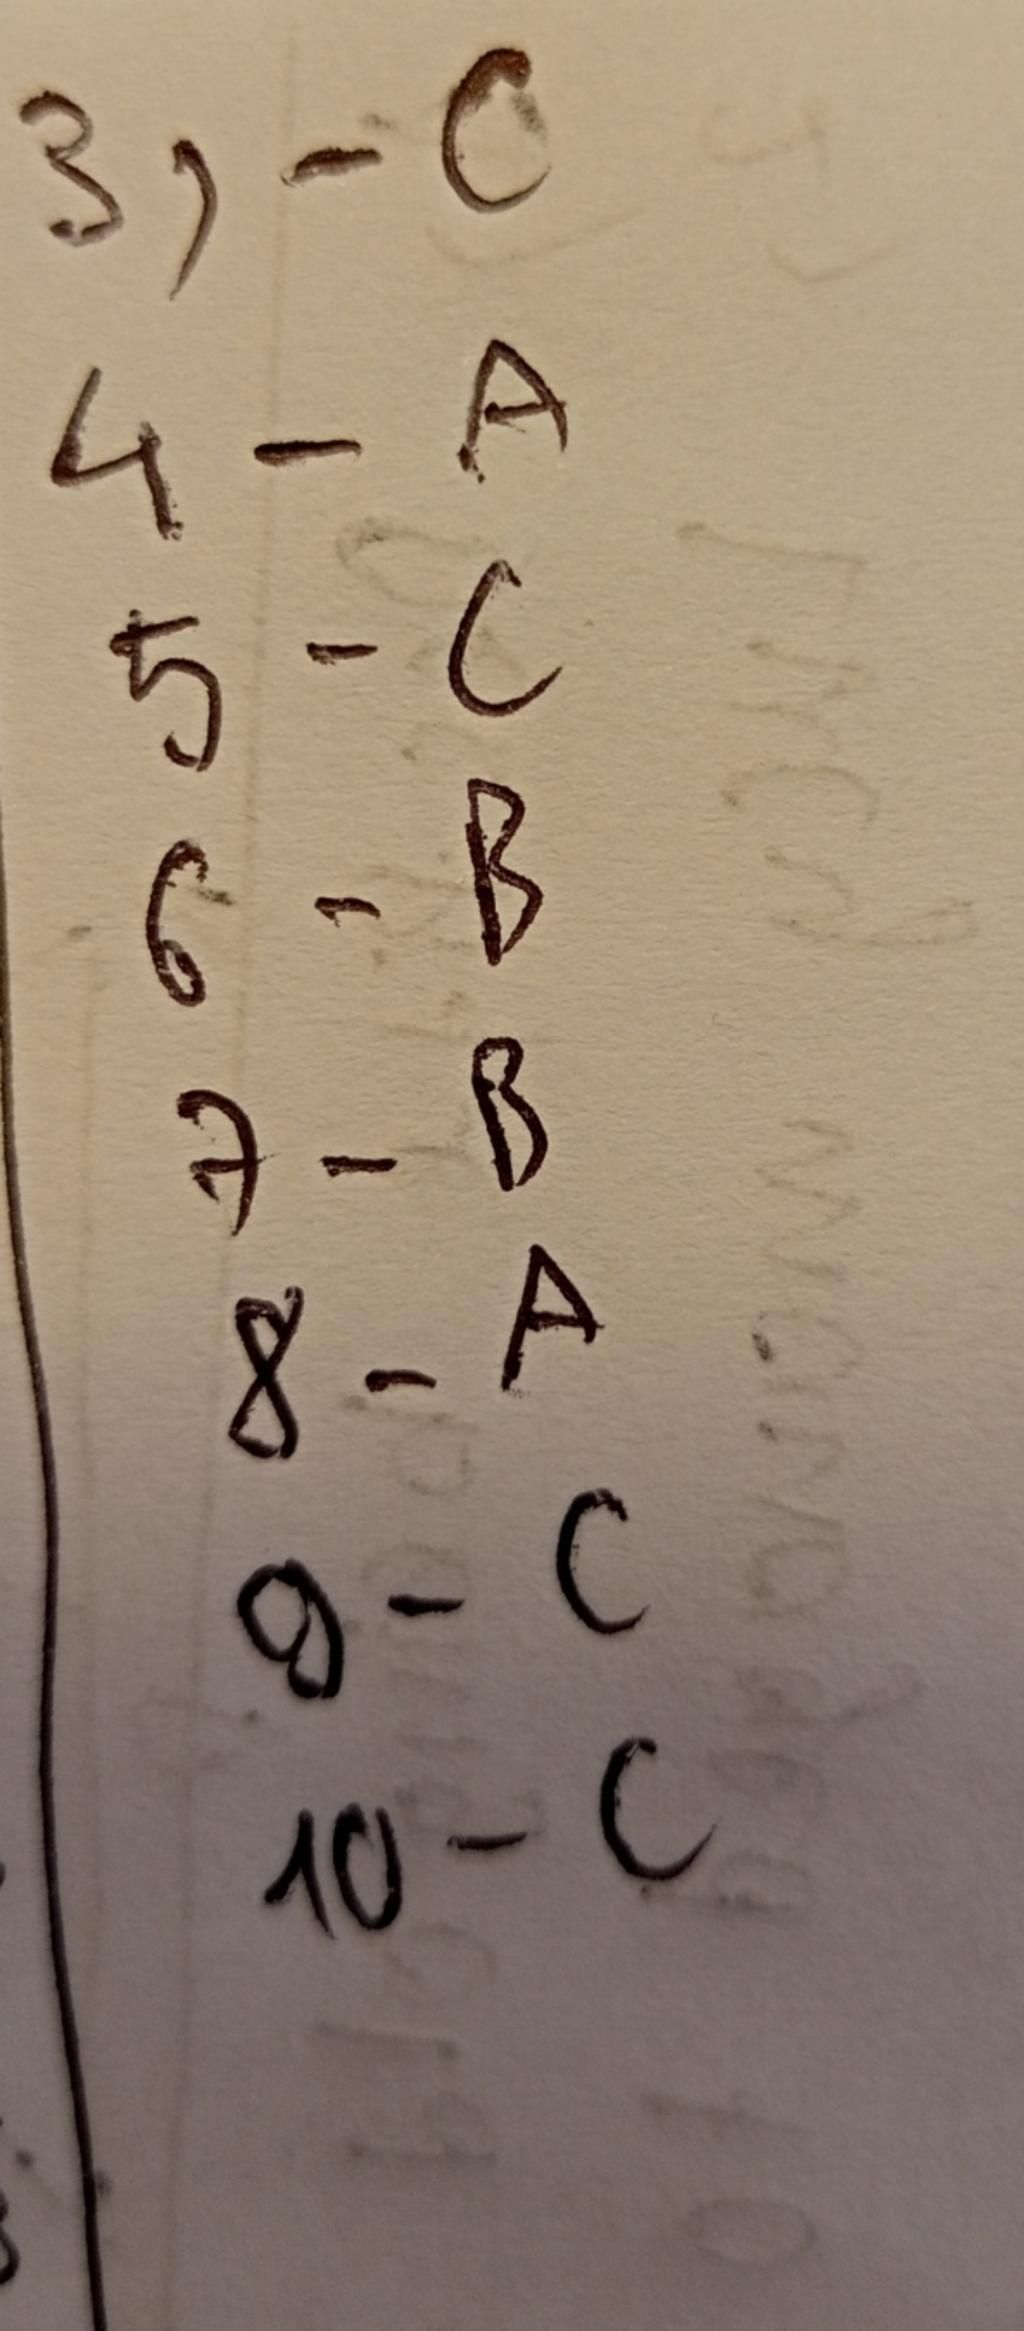 3) - C
4 - A
5 - C
6 - B
7 - B
8 - A
9 - C
10 - C